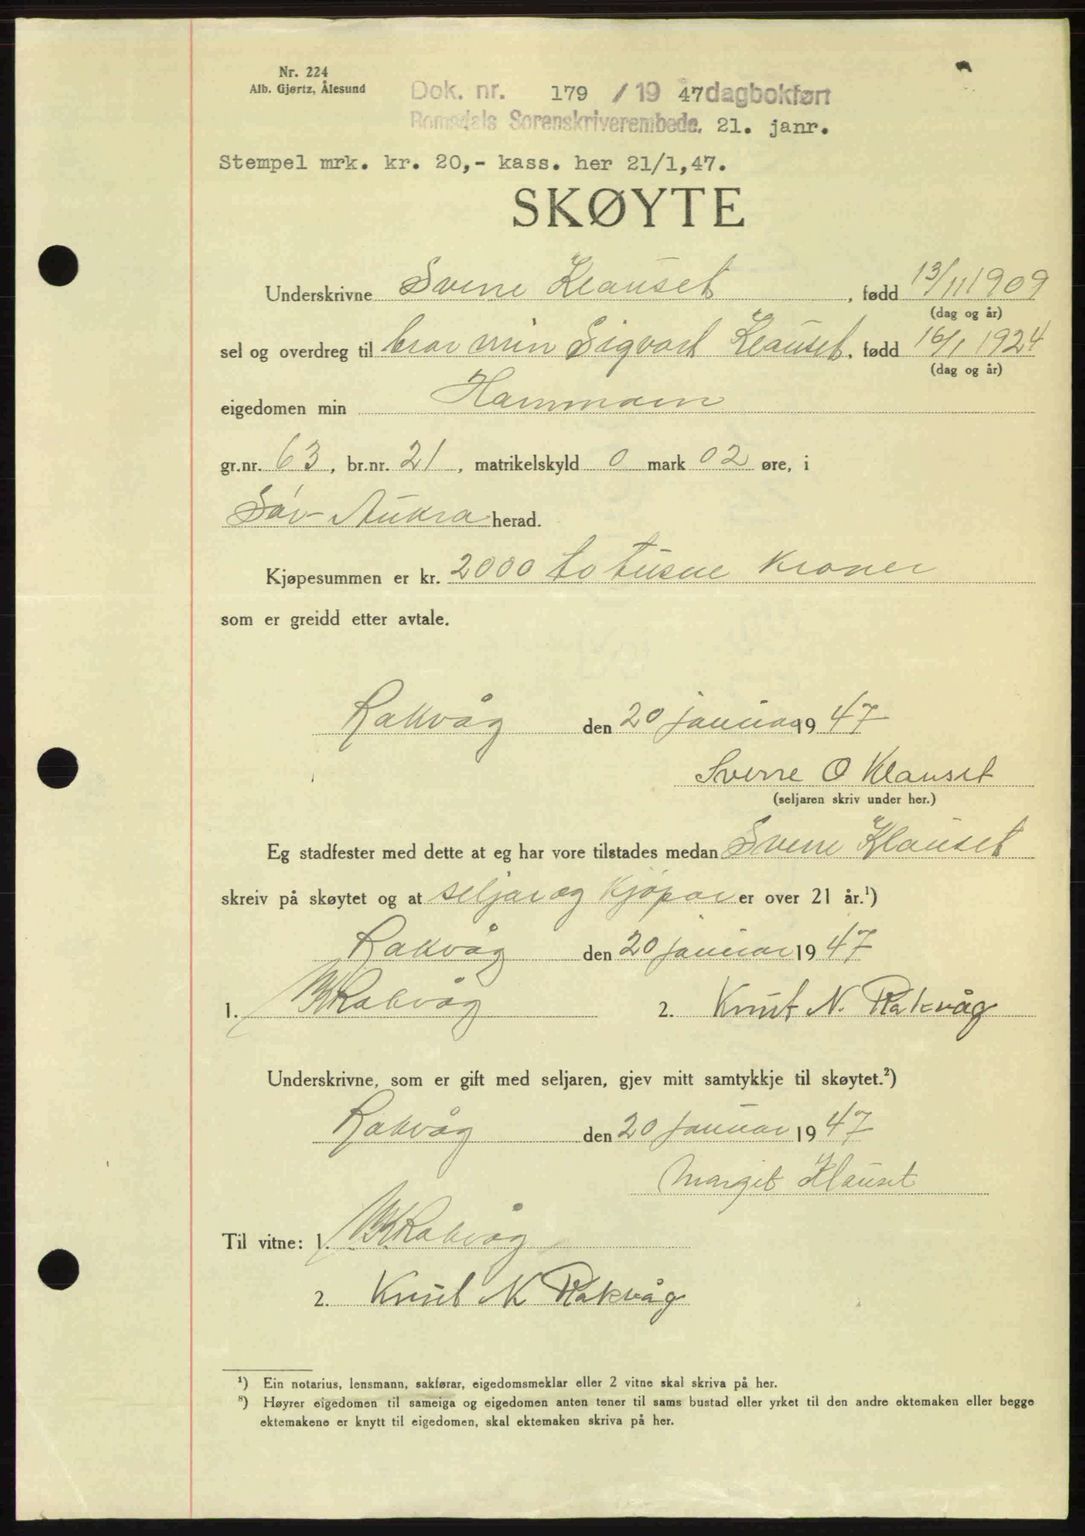 Nr. 224
Alb. Gjørtz, Ålesund
Dok. nr. 179 / 19 47 dagbokført
Romsdals Sorenskriverembede. 21. janr.
Stempel mrk. kr. 20,- kass. her 21/1,47.
SKØYTE
Underskrivne Sverre Klauset, fødd 13/11 1909
(dag og år)
sel og overdreg til bror min Sigvart Klauset, fødd 16/1 1924
(dag og år)
eigedomen min
gr.nr. 63, br.nr. 21, matrikelskyld 0 mark 02 øre, i
Sør-Aukra herad.
Kjøpesummen er kr. 2000 to tusne kroner
som er greidd etter avtale.
Rakvåg den 20 januar 1947
Sverre O Klauset
(seljaren skriv under her.)
Eg stadfester med dette at eg har vore tilstades medan Sverre Klauset
skreiv på skøytet og at seljar og kjøpar er over 21 år.¹)
Rakvåg den 20 januar 1947
1. Rakvåg 2. Knut N. Rakvåg
Underskrivne, som er gift med seljaren, gjev mitt samtykkje til skøytet.²)
Rakvåg den 20 januar 1947
Margit Klauset
Til vitne: 1. Rakvåg
2. Knut N Rakvåg
¹) Ein notarius, lensmann, sakførar, eigedomsmeklar eller 2 vitne skal skriva på her.
²) Høyrer eigedomen til sameiga og eigedomen anten tener til sams bustad eller yrket til den andre ektemaken eller begge
ektemakene er knytt til eigedomen, skal ektemaken skriva på her.